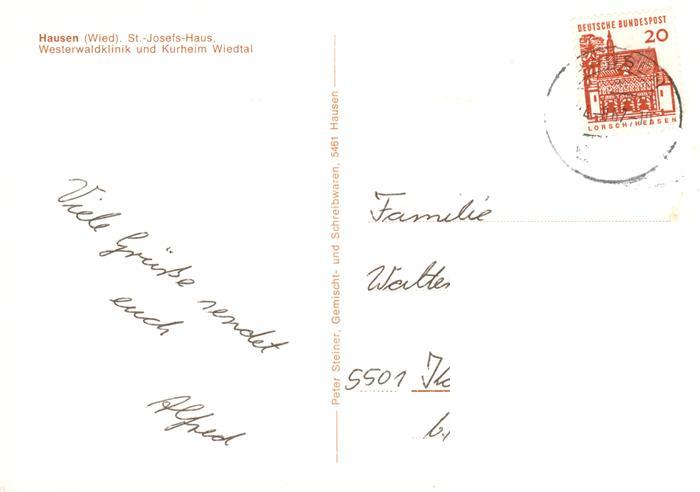 Hausen (Wied). St.-Josefs-Haus,
Westerwaldklinik und Kurheim Wiedtal
DEUTSCHE BUNDESPOST
20
LORSCH/HESSEN
Viele Grüße sendet
euch
Alfred
Peter Steiner, Gemischt- und Schreibwaren, 5461 Hausen
Familie
Walter
5501